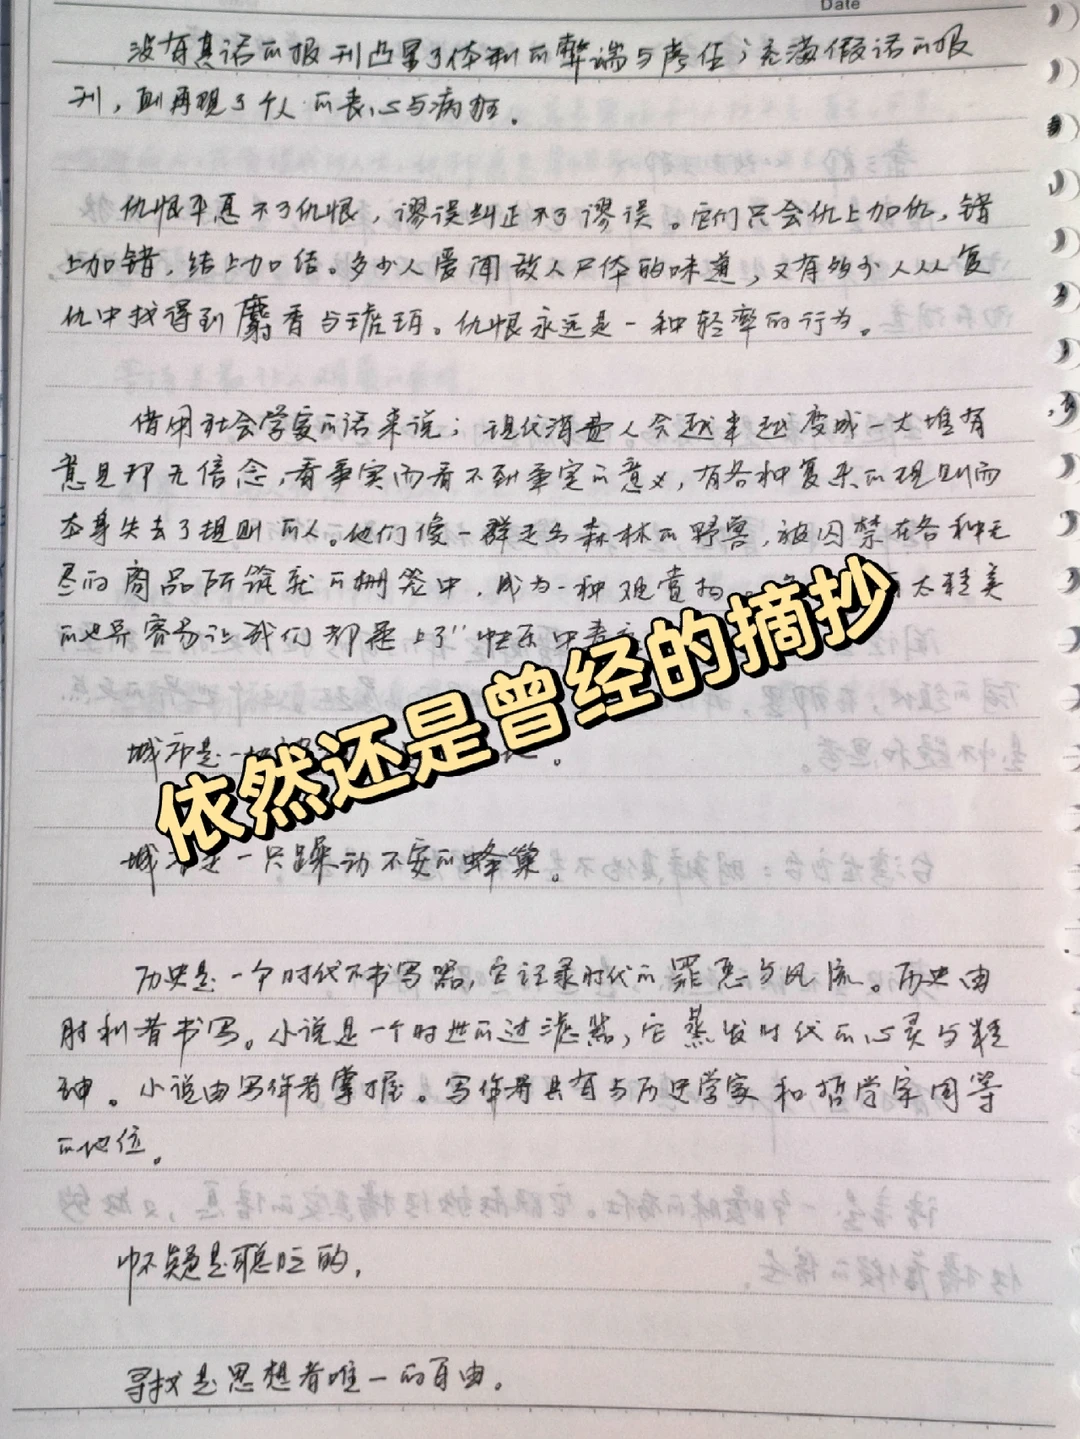 Date
没有真话的报刊凸显了体制的弊端与责任；充满假话的报
刊，则再现了个人的丧心与病狂。
仇恨平息不了仇恨，谬误纠正不了谬误。它们只会仇上加仇，错
上加错，结上加结。多少人爱闻敌人尸体的味道，又有多少人从复
仇中找得到麝香与琥珀。仇恨永远是一种轻率的行为。
借用社会学家的话来说；现代消费人会越来越变成一大堆有
意见却无信念，看事实而看不到事实的意义，有各种复杂的规则而
本身失去了规则的人。他们像一群走出森林的野兽，被囚禁在各种无
尽的商品所筑就的栅签中，成为一种观赏物。太精美
的也异容易让我们都患上了"快乐中毒
城市是一
依然还是曾经的摘抄
城市是一只躁动不安的蜂巢。
历史是一个时代不书写器，它记录时代的罪恶与风流。历史由
胜利者书写。小说是一个时世的过滤器，它蒸发时代的心灵与精
神。小说由写作者掌握。写作者具有与历史学家和哲学家同等
的地位。
怀疑是聪明的，
寻找是思想者唯一的自由。